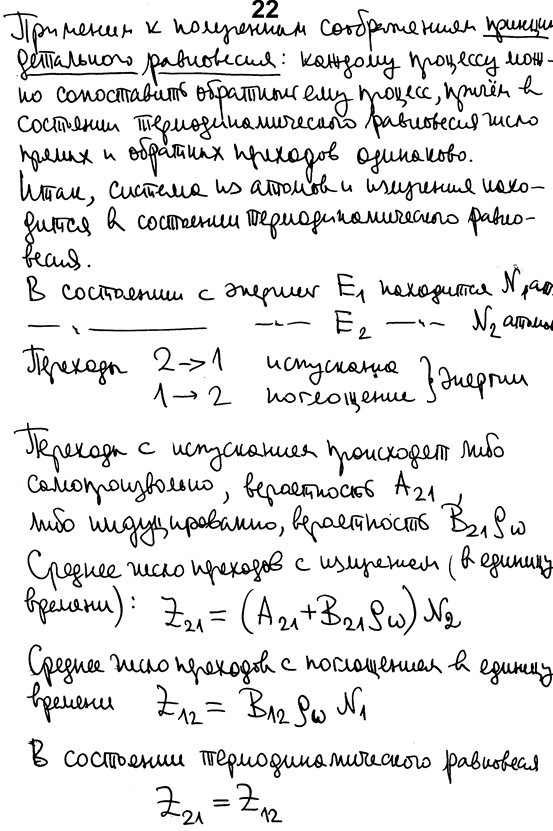 22
Применим к полученным соображениям принцип
детального равновесия: каждому процессу мож-
но сопоставить обратный ему процесс, причём в
состоянии термодинамического равновесия число
прямых и обратных переходов одинаково.
Итак, система из атомов и излучения нахо-
дится в состоянии термодинамического равно-
весия.
В состоянии с энергией E₁ находится N₁ ат
— „ — — „ — E₂ — „ — N₂ атомов
Переходы 2→1 испускание } энергии
1→2 поглощение
Переходы с испусканием происходят либо
самопроизвольно, вероятность A₂₁,
либо индуцированно, вероятность B₂₁ρω
Среднее число переходов с излучением (в единицу
времени): Z₂₁ = (A₂₁+B₂₁ρω)N₂
Среднее число переходов с поглощением в единицу
времени Z₁₂ = B₁₂ρω N₁
В состоянии термодинамического равновесия
Z₂₁ = Z₁₂